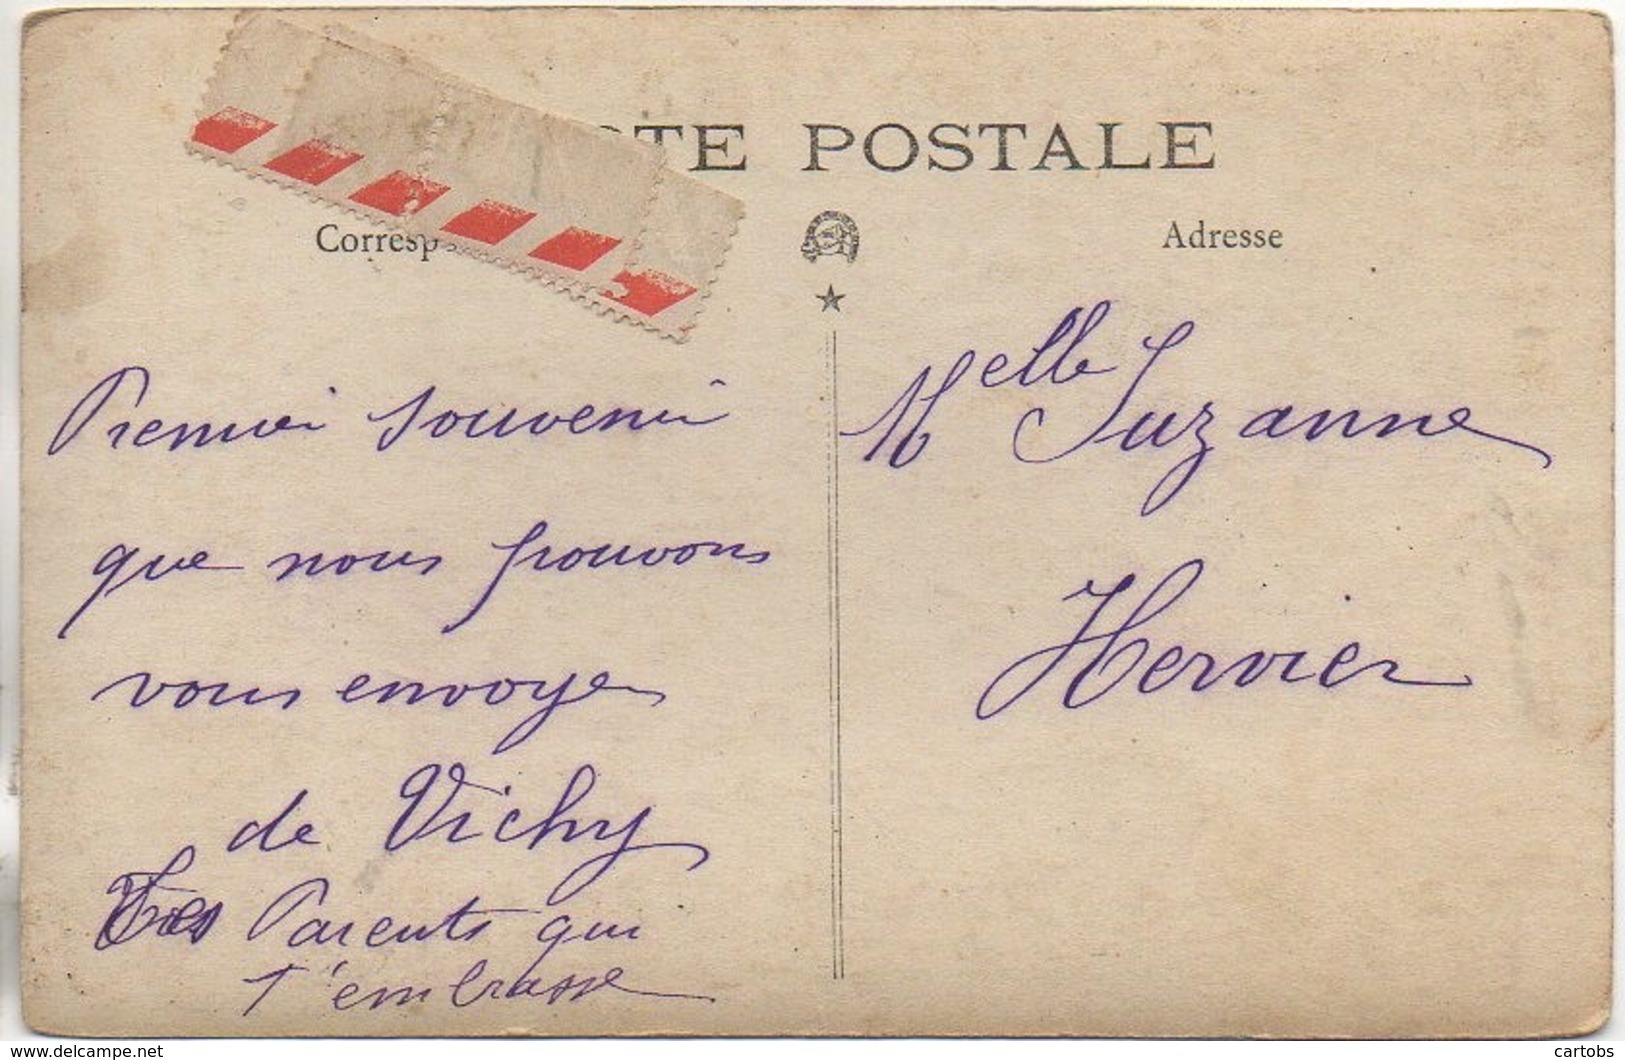 TE POSTALE
Corresp
Adresse
Premier souvenir
que nous pouvons
vous envoyer
de Vichy
Tes Parents qui
t'embrasse
Melle Suzanne
Hervier
www.delcampe.net
cartobs